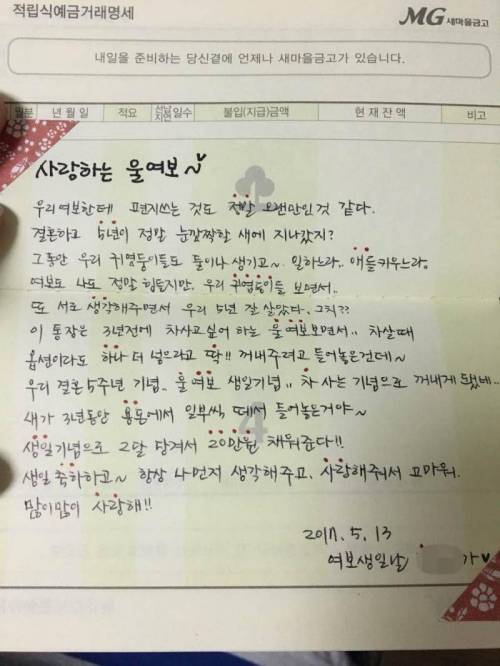 적립식예금거래명세
MG 새마을금고
내일을 준비하는 당신곁에 언제나 새마을금고가 있습니다.
월분 년 월 일 적요 선납 지연 일수 불입(지급)금액 현 재 잔 액 비고
사랑하는 울여보~♥
우리여보한테 편지쓰는 것도 정말 오랜만인것 같다.
결혼하고 5년이 정말 눈깜짝할 새에 지나갔지?
그동안 우리 귀염둥이들도 둘이나 생기고~ 일하느라, 애들키우느라,
여보도 나도 정말 힘들지만, 우리 귀염둥이들 보면서..
또 서로 생각해주면서 우리 5년 잘 살았다. 그치??
이 통장은 3년전에 차사고싶어 하는 울여보보면서.. 차살때
옵션이라도 하나 더 넣으라고 딱!! 꺼내주려고 들어놓은건데~
우리 결혼5주년 기념.. 울여보 생일기념.. 차 사는 기념으로 꺼내게 됐네..
내가 3년동안 용돈에서 일부씩 떼서 들어놓은거야~
생일기념으로 2달 당겨서 20만원 채워준다!!
생일 축하하고~ 항상 나먼저 생각해주고, 사랑해줘서 고마워.
많이많이 사랑해!!
2017. 5. 13
여보생일날 가♥
4